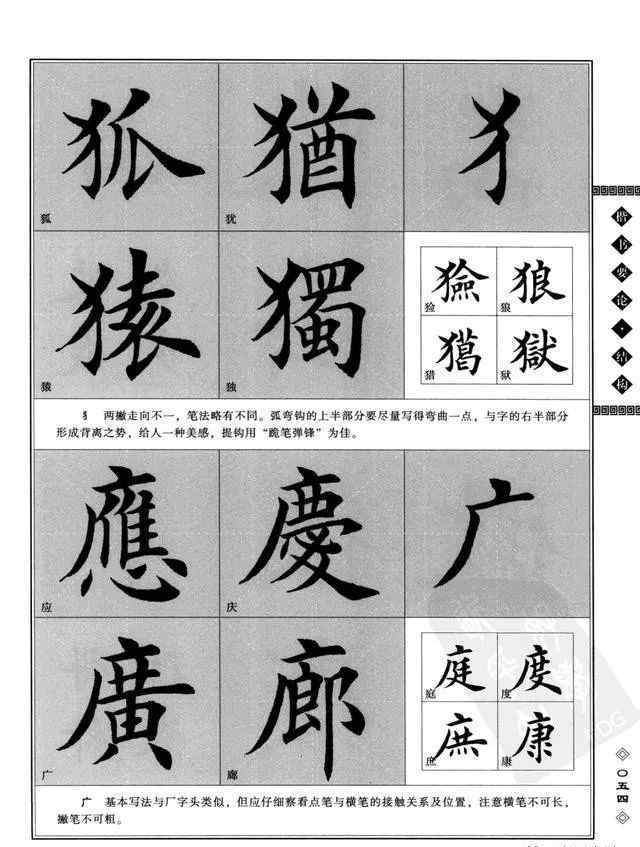 狐 猶 犭
狐 犹
猿 獨 獫 狼
猃 狼
獵 獄
猿 独 猎 狱
犭 两撇走向不一，笔法略有不同。弧弯钩的上半部分要尽量写得弯曲一点，与字的右半部分
形成背离之势，给人一种美感，提钩用“跪笔弹锋”为佳。
應 慶 广
应 庆
廣 廊 庭 度
庭 度
庶 康
广 廊 庶 康
广 基本写法与厂字头类似，但应仔细察看点笔与横笔的接触关系及位置，注意横笔不可长，
撇笔不可粗。
楷书要论·结构
〇五四